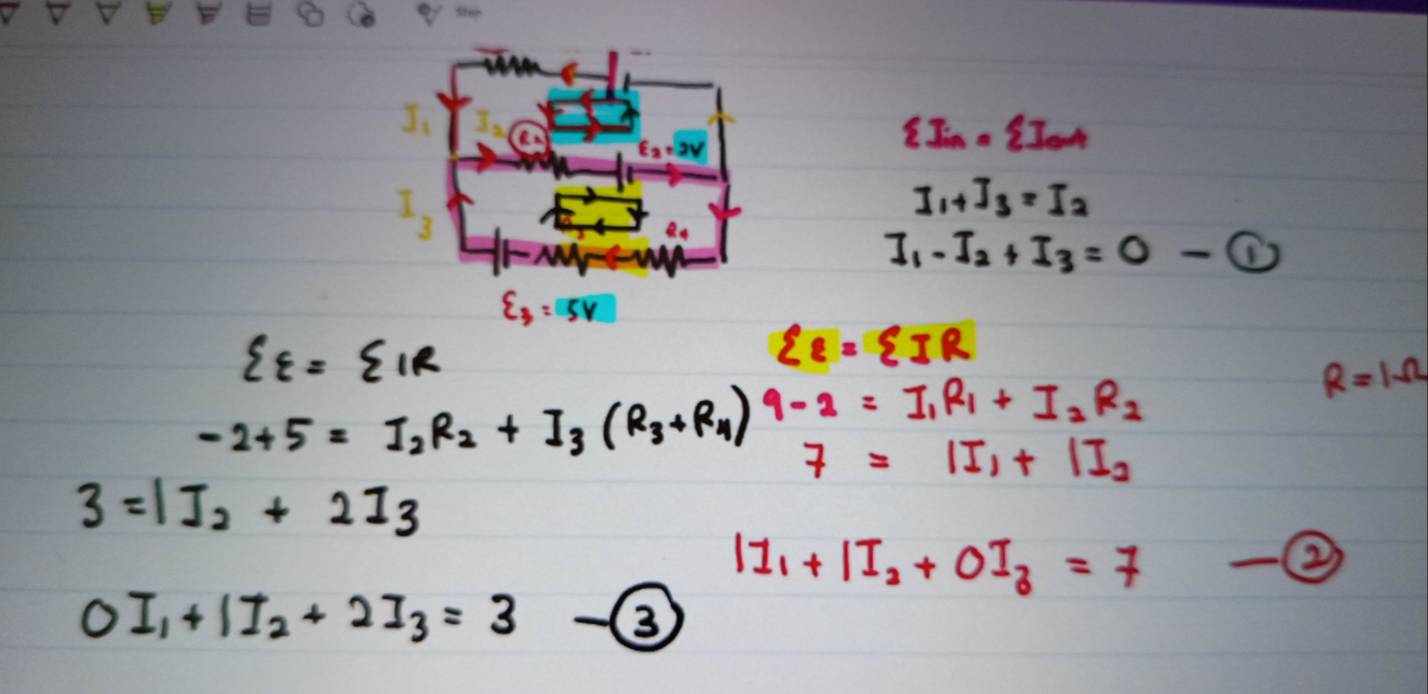 I₁ I₂ R₂ ε₂ = 2V
I₃
R₄
ε₃ = 5V
ΣIin = ΣIout
I₁ + I₃ = I₂
I₁ - I₂ + I₃ = 0 - ①
Σε = ΣIR
-2+5 = I₂R₂ + I₃ (R₃+R₄)
3 = 1I₂ + 2I₃
0I₁ + 1I₂ + 2I₃ = 3 - ③
Σε = ΣIR
R = 1Ω
9 - 2 = I₁R₁ + I₂R₂
7 = 1I₁ + 1I₂
1I₁ + 1I₂ + 0I₃ = 7 - ②